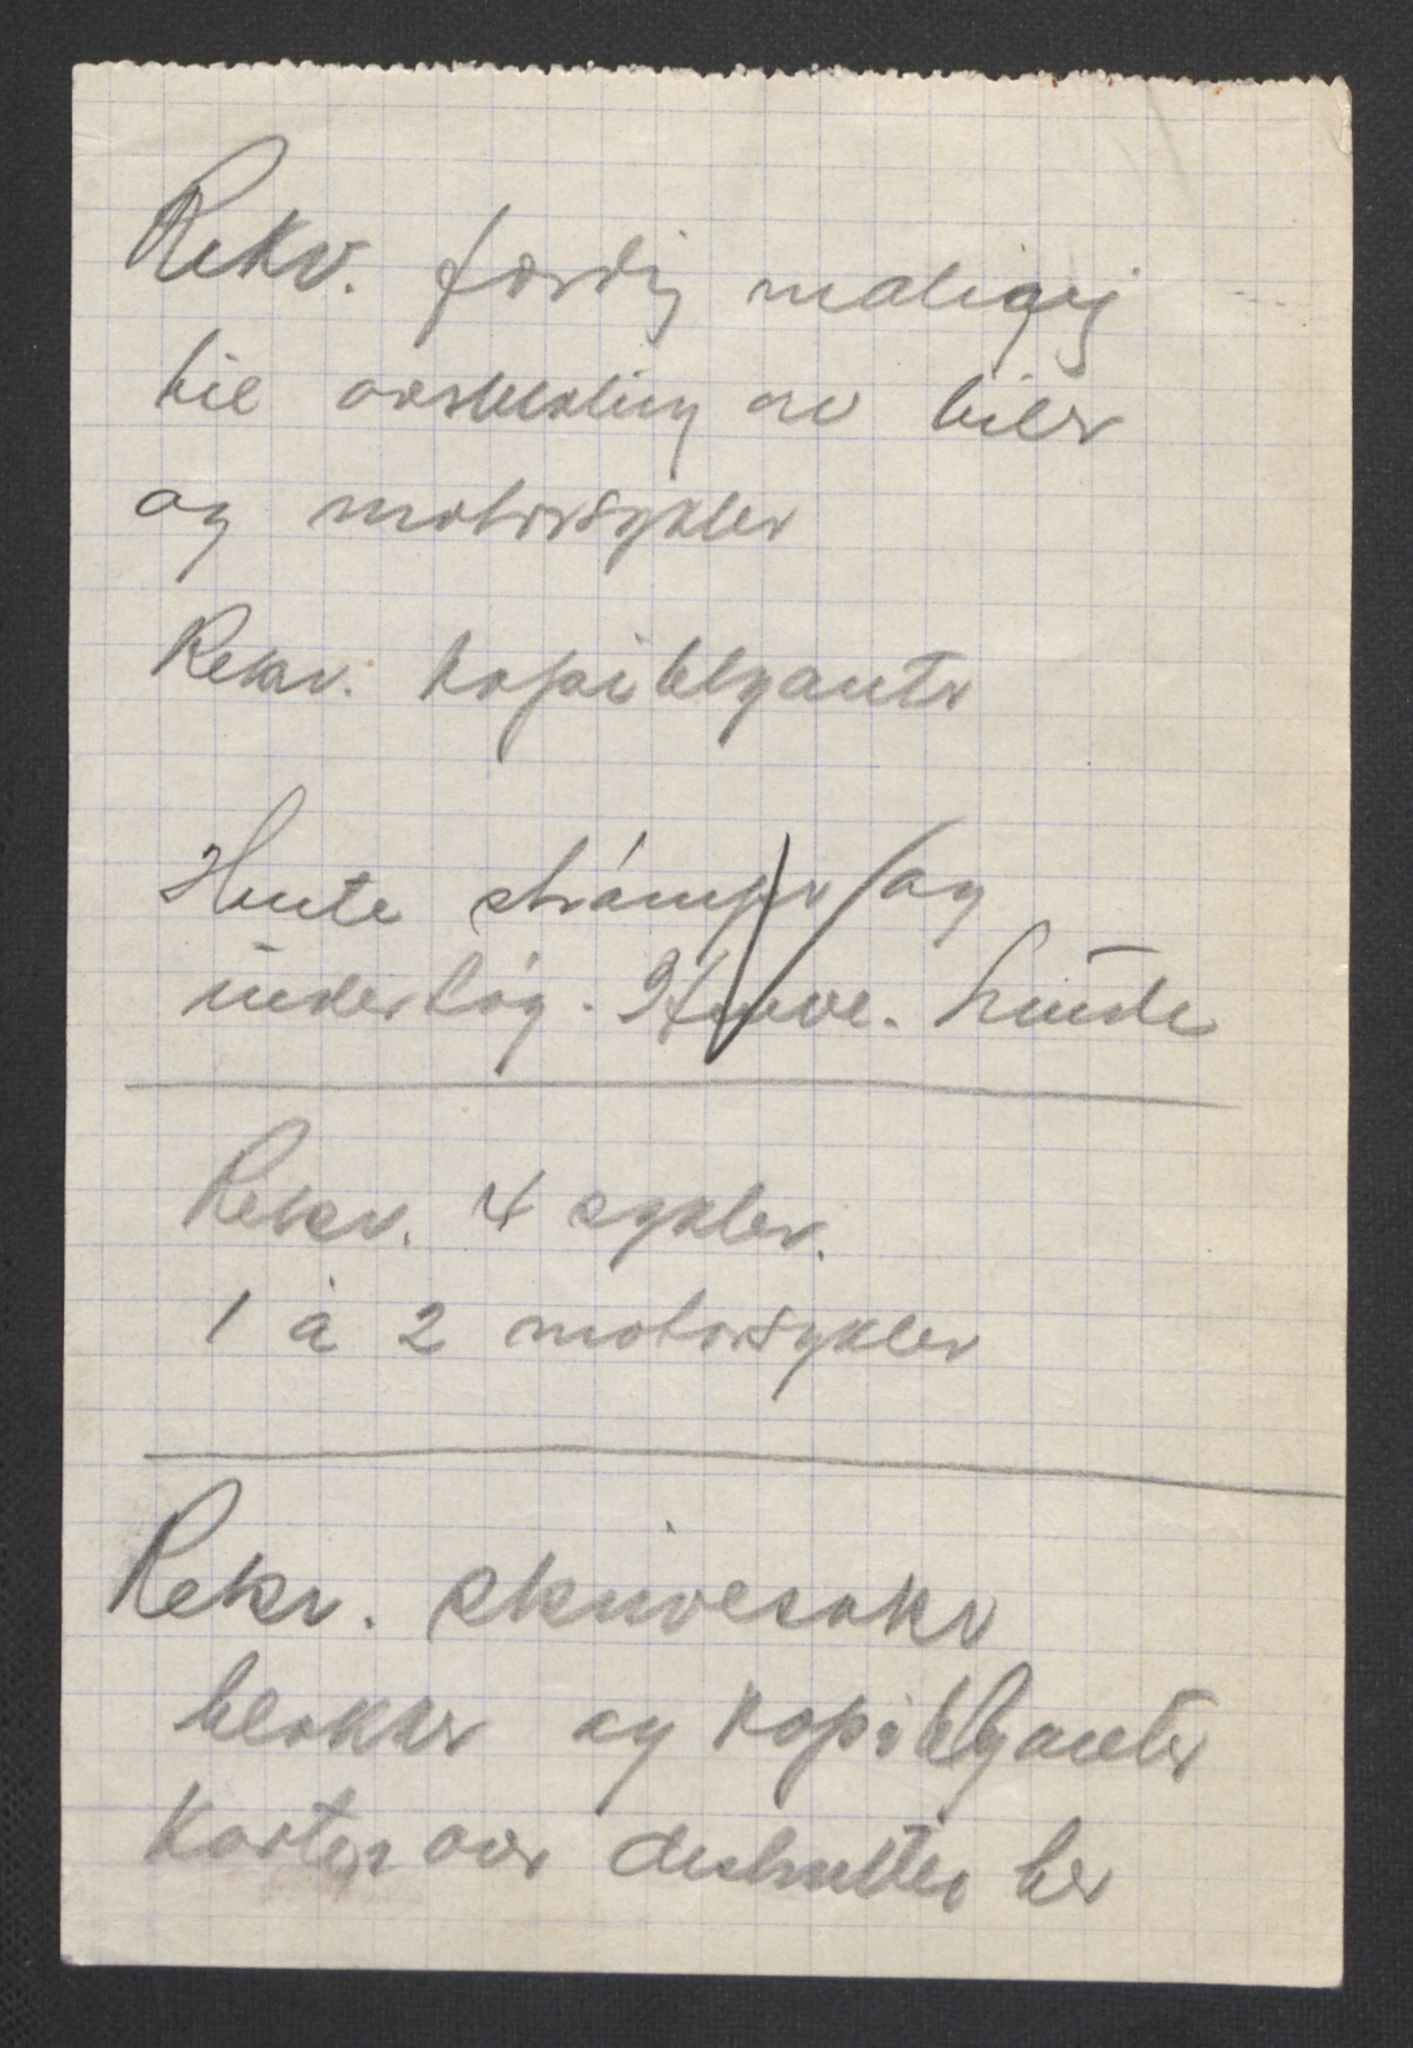 Rekv. færdig maling
til overmaling av biler
og motorsykler
Rekv. kopiblyanter
Hente strømper og
undertøy. Hove. Lunde
Rekv. 4 sykler.
1 à 2 motorsykler
Rekv. skrivesaker
blokker og kopiblyanter
Karter over distriktet her